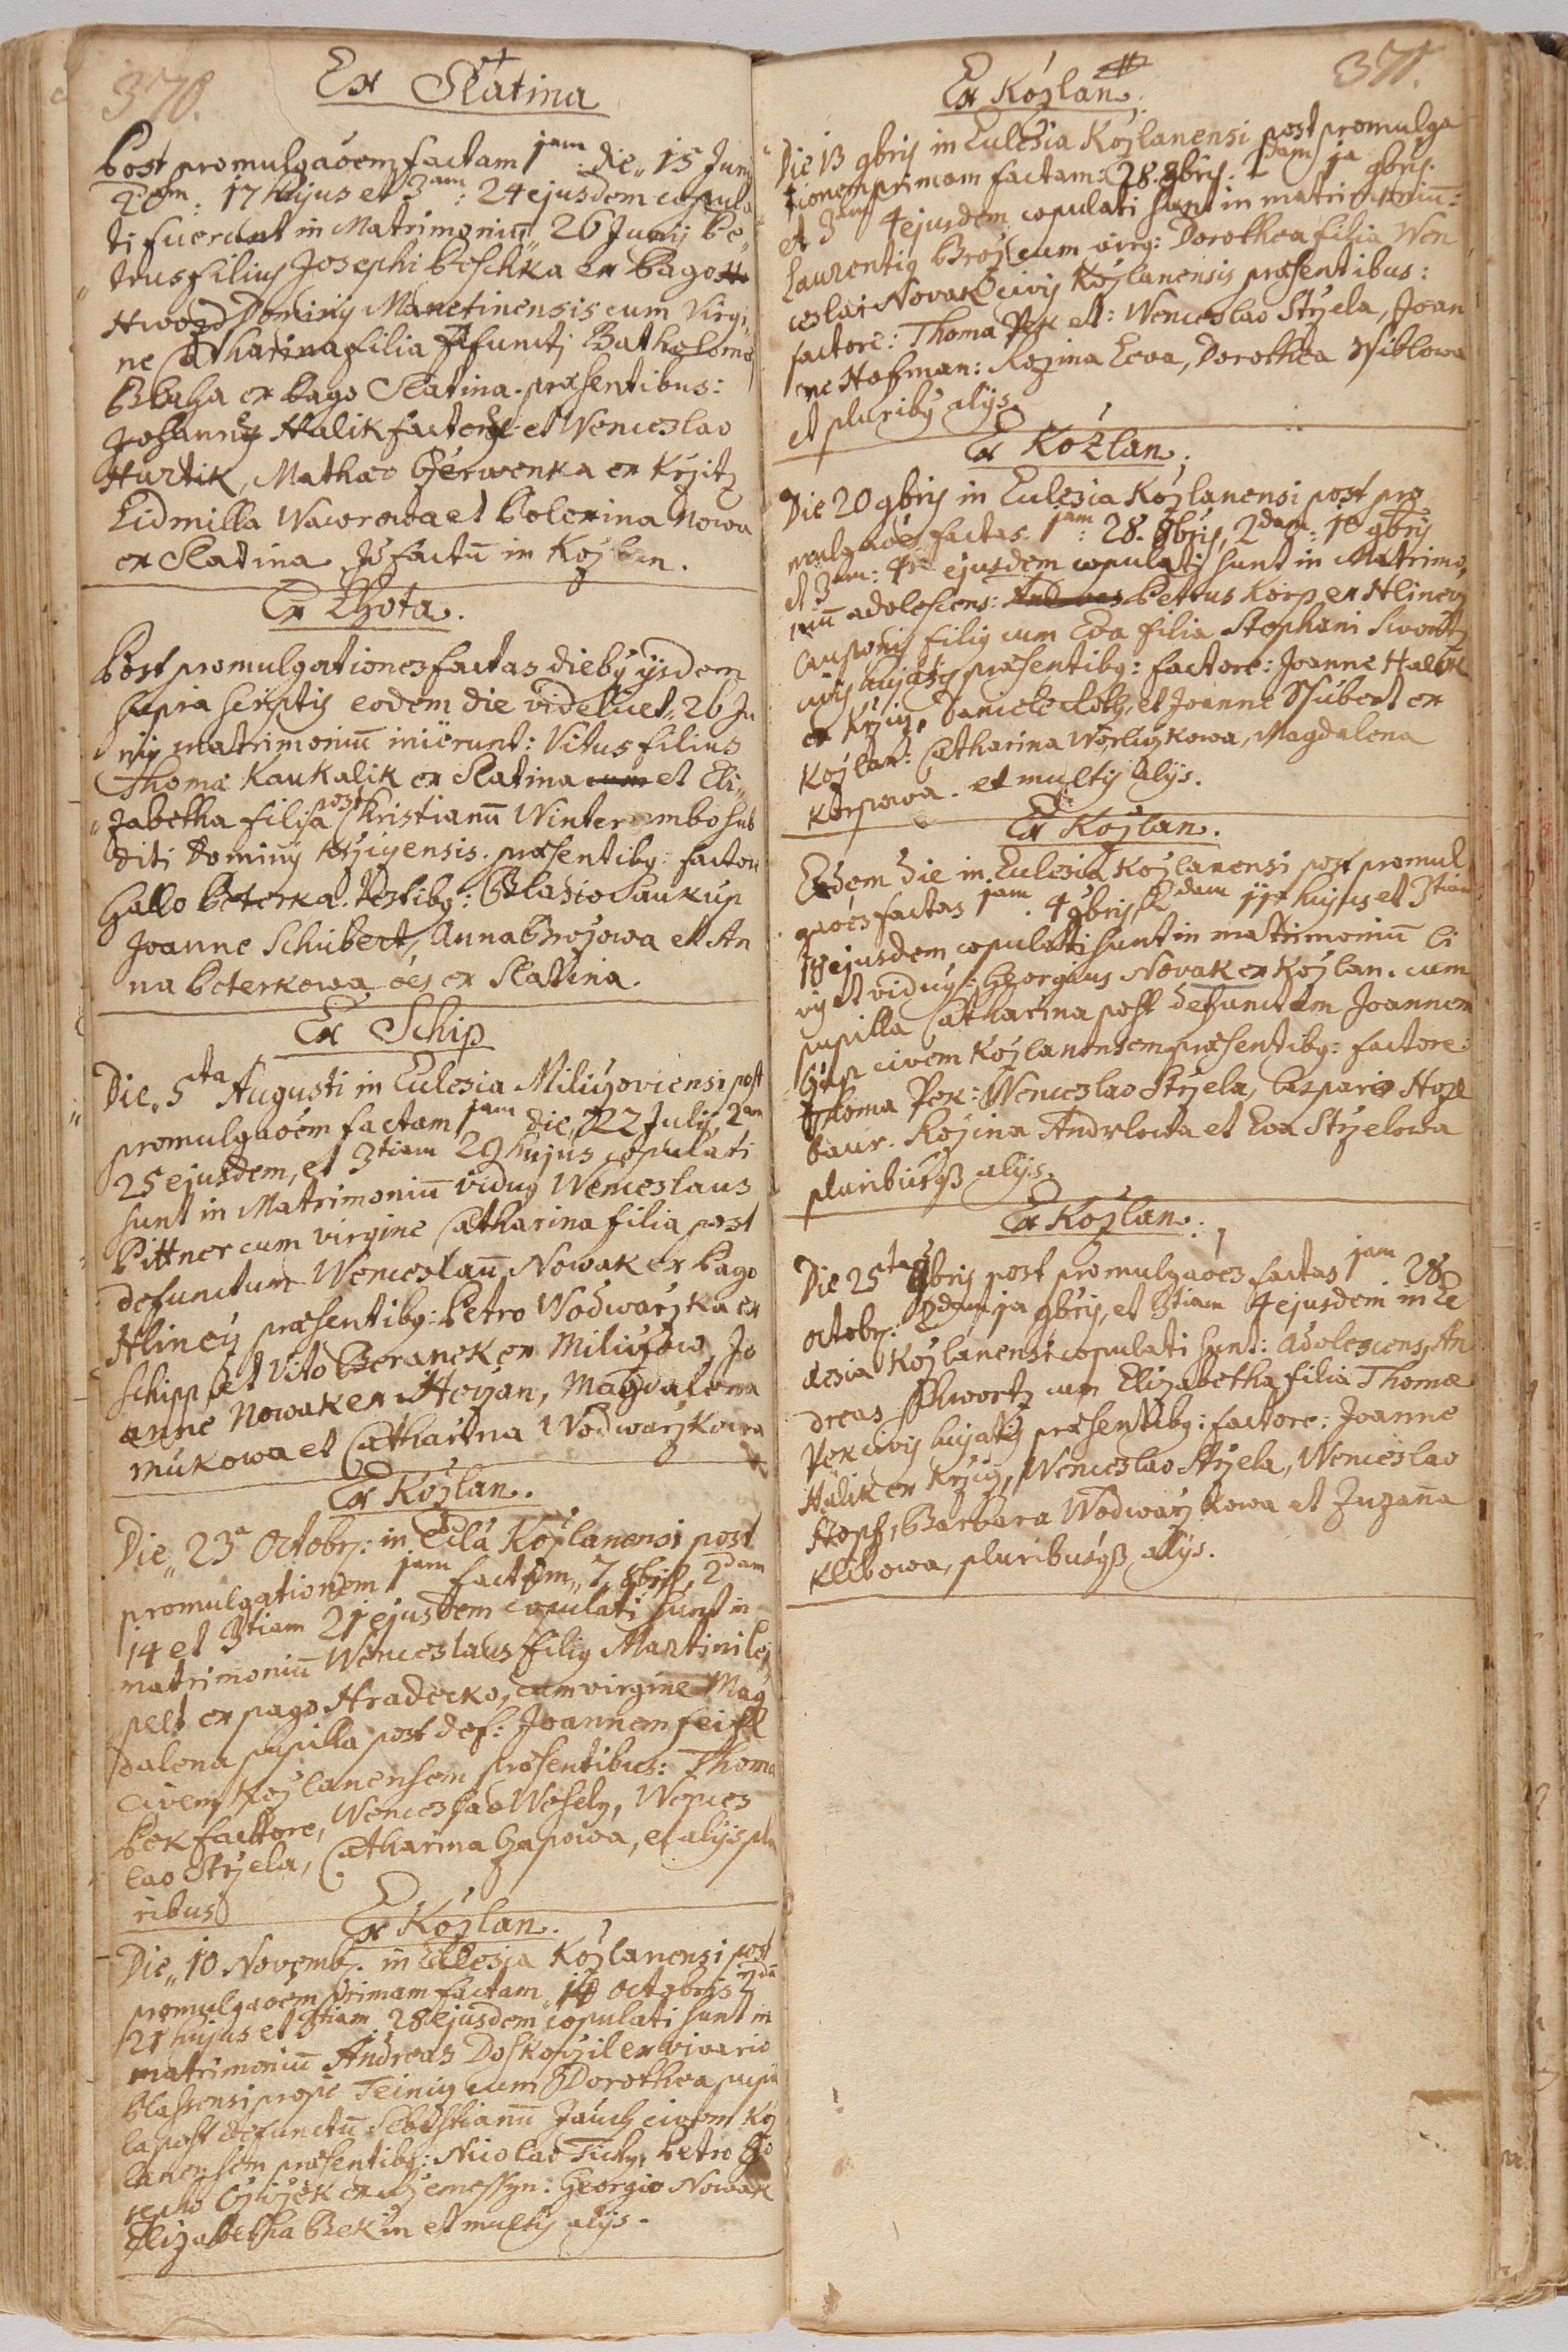 370.
Ex Slatina
Post promulgaoem factam 1am: die 15 Juny
2dam: 17 hujus et 3am: 24 ejusdem copula
ti fuerunt in Matrimoniū 26 Junij Pe„
trus filius Josephi Peschka ex Pago
Hwozd Dominij Manetinensis cum Virgi„
ne Catharina filia defuncti Batholomæ
Blaha ex Pago Slatina. præsentibus:
Johanne Halik factore et Wenceslao
Hurtik, Mathæo Czerwenka ex Krzitz
Lidmilla Wawrowa et Polexina Nowa
ex Slatina factū in Kozlan.
Ex Lhota.
Post promulgationes factas dieby ijsdem
supra scriptis eodem die videlicet 26 Ju
nij matrimoniū inierunt: Vitus filius
Thomæ Kaukalik ex Slatina et Eli„
zabetha filia post Christianū Winter ambo sub
diti Dominij Krziczensis. præsentibg: factore
Gallo Peterka. testibg: Blasio Saukup
Joanne Schubert, Anna Brojowa et An
na Peterkowa oes ex Slatina.
Ex Schip
Die 5ta Augusti in Eclesia Miliczoviensi post
promulgaoem factam 1am die 22 July, 2am
25 ejusdem, et 3tiam 29 hujus copulati
sunt in Matrimoniū viduy Wenceslaus
Pittner cum virgine Catharina filia post
defunctum Wenceslaū Nowak ex Pago
Hlincy præsentibg: Petro Wodwarzka ex
Schipp et Vito Beranek ex Miliczow, Jo
anne Nowak ex Hoyan, Magdalena
mukowa et Catharina Wodwarzkowa
Ex Kozlan.
Die 23 Octobr: in Eclā Kozlanensi post
promulgationem 1am factam 7. 8bris, 2dam
14 et 3tiam 21 ejusdem copulati sunt in
matrimoniū Wenceslaus filiy Martini
pelt ex pago Hradecko, cum virgine Mag
dalena pupilla post def: Joannem feifl
civem Kozlanensem præsentibus: Thoma
Pek factore, Wenceslao Wesely, Wences
lao Strzela, Catharina Gapowa, et alijs plu
ribus
Ex Kozlan.
Die 10 Novemb. in Eclesia Kozlanensi post
promulgaoem primam factam 14 octobris 2da
21 hujus et 3tiam 28 ejusdem copulati sunt in
matrimoniū Andreas Doskoczil ex vivario
Plassensi prope Teinicz cum Dorothea pupi
la post defunctū Sebestianū Jauch civem Koz
lanensem præsentibg: Nicolao Tichy, Petro
Georgio Nowak
Elizabetha Bekin et multy alijs.
371.
Ex Kozlan.
Die 13 9bris in Eclesia Kozlanensi post promulga
tionem primam factam: 28. 8bris. 2dam 1a 9bris.
et 3am 4 ejusdem copulati sunt in matrimoniū:
Laurentiy Broj cum virg: Dorothea filia Wen
ceslai Novak civis Kozlanensis præsentibus:
factore: Thoma Pek et: Wenceslao Strzela, Joan
ne Hofman: Rozina Ecva, Dorothea
et pluribg alijs.
Ex Kozlan.
Die 20 9bris in Eclesia Kozlanensi post pro
mulgaoes factas 1am: 28. 8bris, 2dam: 1a 9bris
et 3am: 4 ejusdem copulati sunt in Matrimo„
niū adolescens: Petrus Korp ex Hlincy
Cauponis filiy cum Eva filia Stephani Swortz
civis hujatis præsentibg: factore: Joanne Halik
ex Krzicz, Daniele et Joanne Schubert ex
Kozlan: Catharina Worliczkowa, Magdalena
Korpowa. et multis alijs.
Ex Kozlan.
Eodem die in Eclesia Kozlanensi post promul
gaoes factas 1am. 4 9bris, 2dam 11 hujus et 3tiam
18 ejusdem copulati sunt in matrimoniū ci
vis et viduy: Georgius Novak ex Kozlan. cum
pupilla Catharina post defunctam Joannem
Gap civem Kozlanensem præsentibg: factore:
Thoma Pek: Wenceslao Strzela, Casparo Hopf
baur. Rozina Andrlowa et Eva Strzelowa
pluribusqз alijs.
Ex Kozlan.
Die 25ta 9bris post promulgaoes factas 1am. 28
octobr: 2dam 1a 9bris, et 3tiam 4 ejusdem in Ec
clesia Kozlanensi copulati sunt: adolescens An
dreas Schwortz cum Elizabetha filia Thomæ
Pek civis hujatis præsentibg: factore: Joanne
Halik ex Krzicz, Wenceslao Strzela, Wenceslao
Stopf, Barbara Wodwarzkowa et Zuzana
Klibowa, pluribusqз alijs.